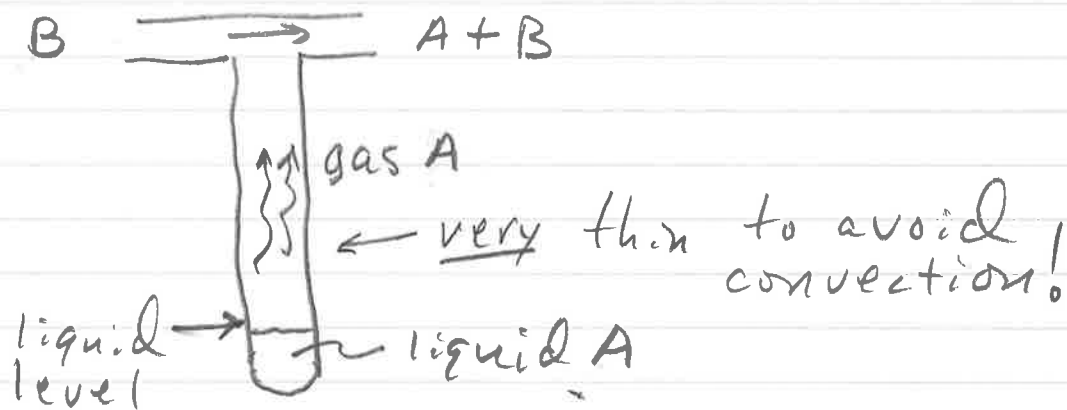 B
A + B
gas A
very thin to avoid
convection!
liquid
level
liquid A